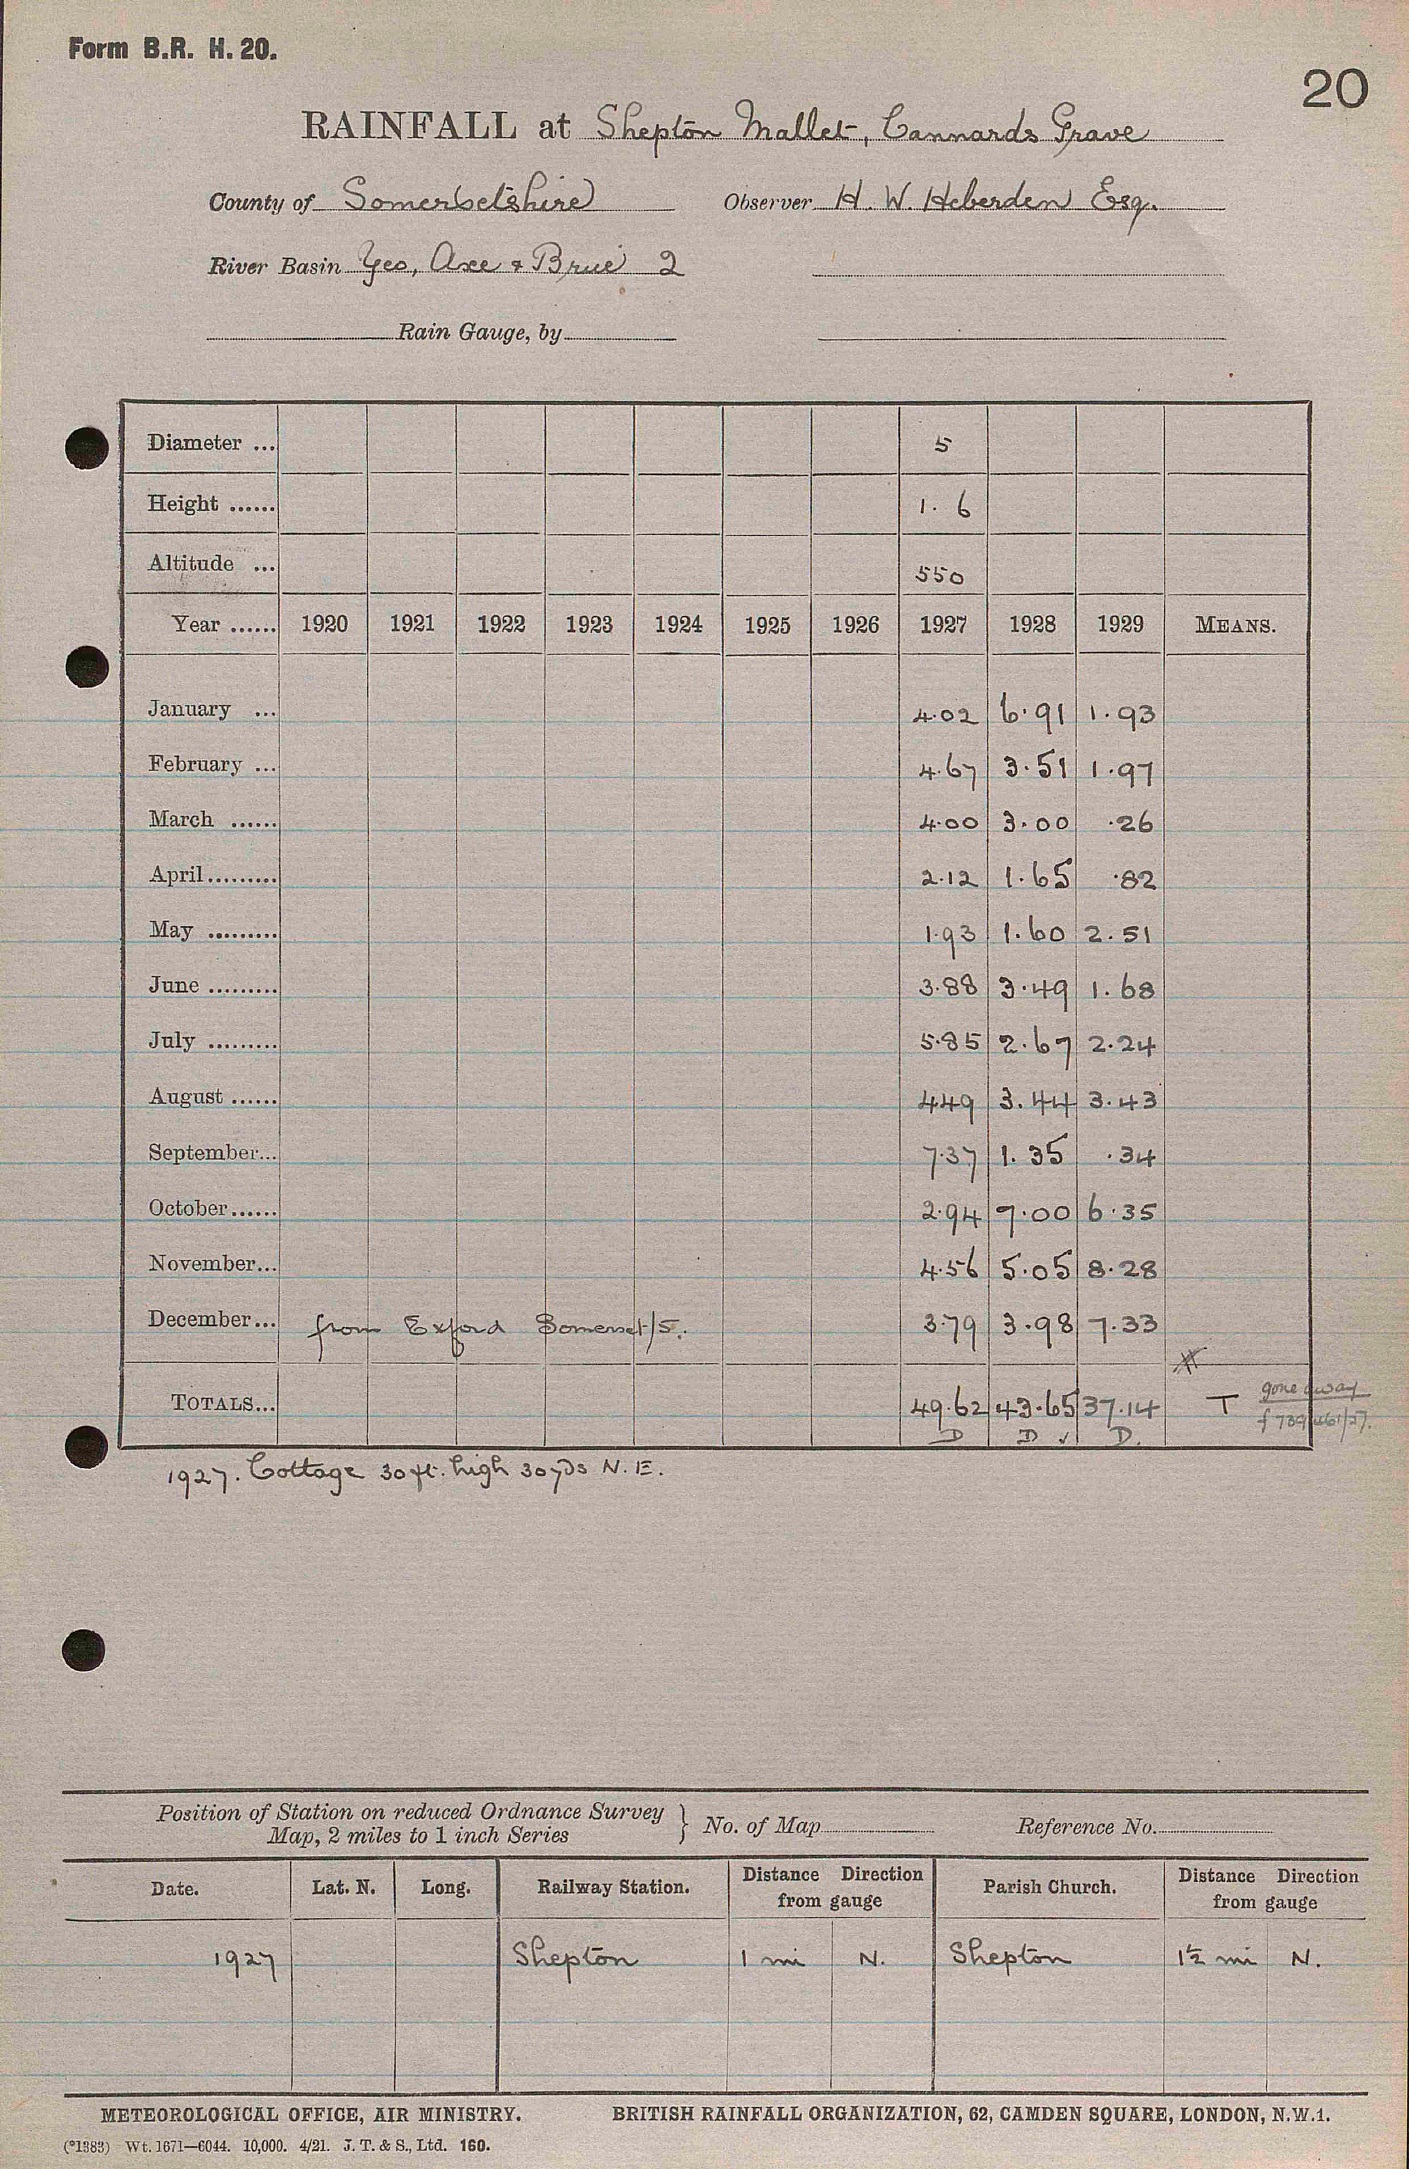 Form B.R. H. 20.
20
RAINFALL at Shepton Mallet, Cannards Grave
County of Somersetshire Observer H. W. Heberden Esq.
River Basin Yeo, Axe & Brue 2
Rain Gauge, by
Diameter ... 5
Height ...... 1. 6
Altitude ... 550
Year ...... 1920 1921 1922 1923 1924 1925 1926 1927 1928 1929 MEANS.
January ... 4.02 6.91 1.93
February ... 4.67 3.51 1.97
March ...... 4.00 3.00 .26
April......... 2.12 1.65 .82
May ......... 1.93 1.60 2.51
June ......... 3.88 3.49 1.68
July ......... 5.85 2.67 2.24
August ...... 4.49 3.44 3.43
September... 7.37 1.35 .34
October...... 2.94 7.00 6.35
November... 4.56 5.05 8.28
December... from Exford Somerset/5. 3.79 3.98 7.33
TOTALS... 49.62 43.65 37.14 T gone away
D D ✓ D.
1927. Cottage 30 ft. high 30 yds N. E.
Position of Station on reduced Ordnance Survey
Map, 2 miles to 1 inch Series } No. of Map Reference No.
Date. Lat. N. Long. Railway Station. Distance Direction from gauge Parish Church. Distance Direction from gauge
1927 Shepton 1 mi N. Shepton 1½ mi N.
METEOROLOGICAL OFFICE, AIR MINISTRY. BRITISH RAINFALL ORGANIZATION, 62, CAMDEN SQUARE, LONDON, N.W.1.
(*1383) Wt. 1671—6044. 10,000. 4/21. J. T. & S., Ltd. 160.